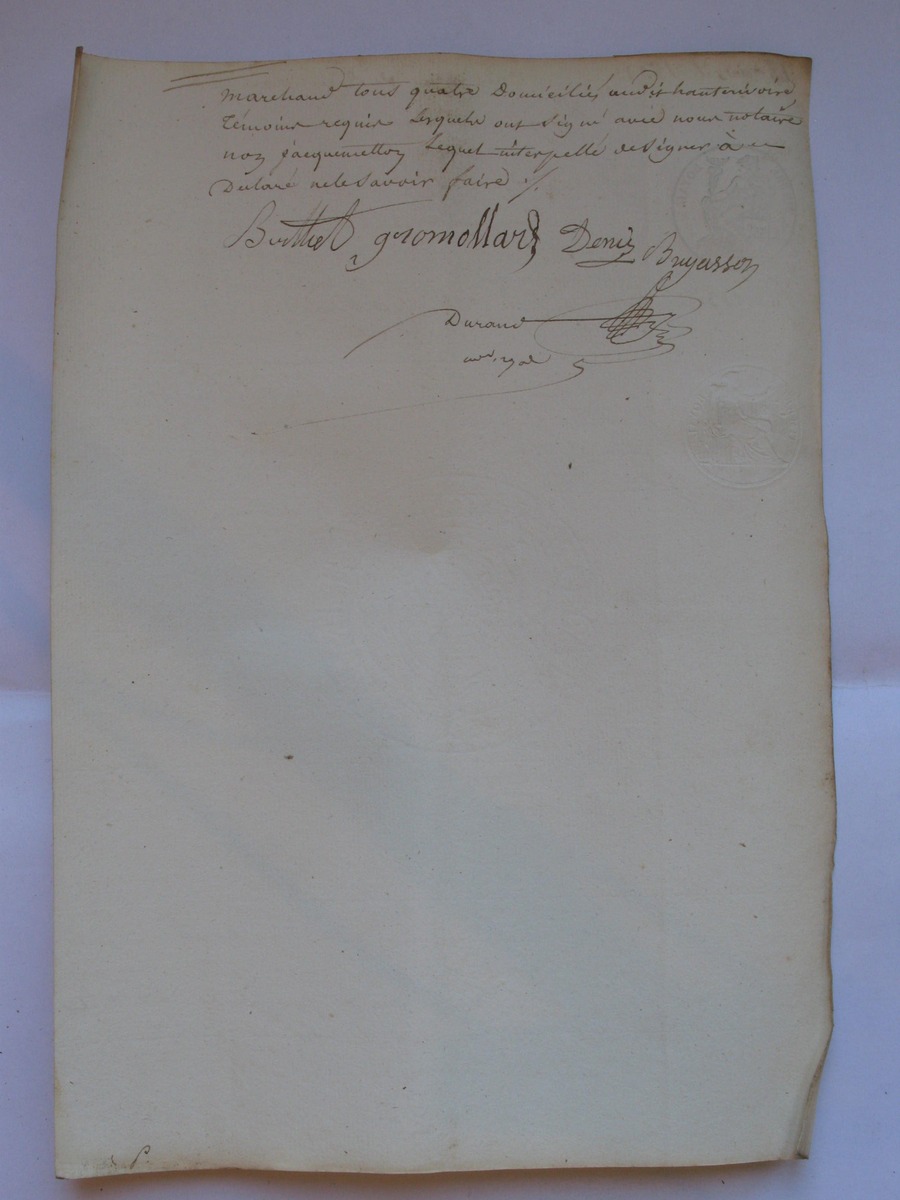 marchand tous quatre Domiciliés audit hauterivoire
témoins requis Lesquels ont signé avec nous notaire
non jacquemetton Lequel interpellé de signer à
Déclaré ne le savoir faire ./.
Berthet gromollard Denis Bruyasson
Durand